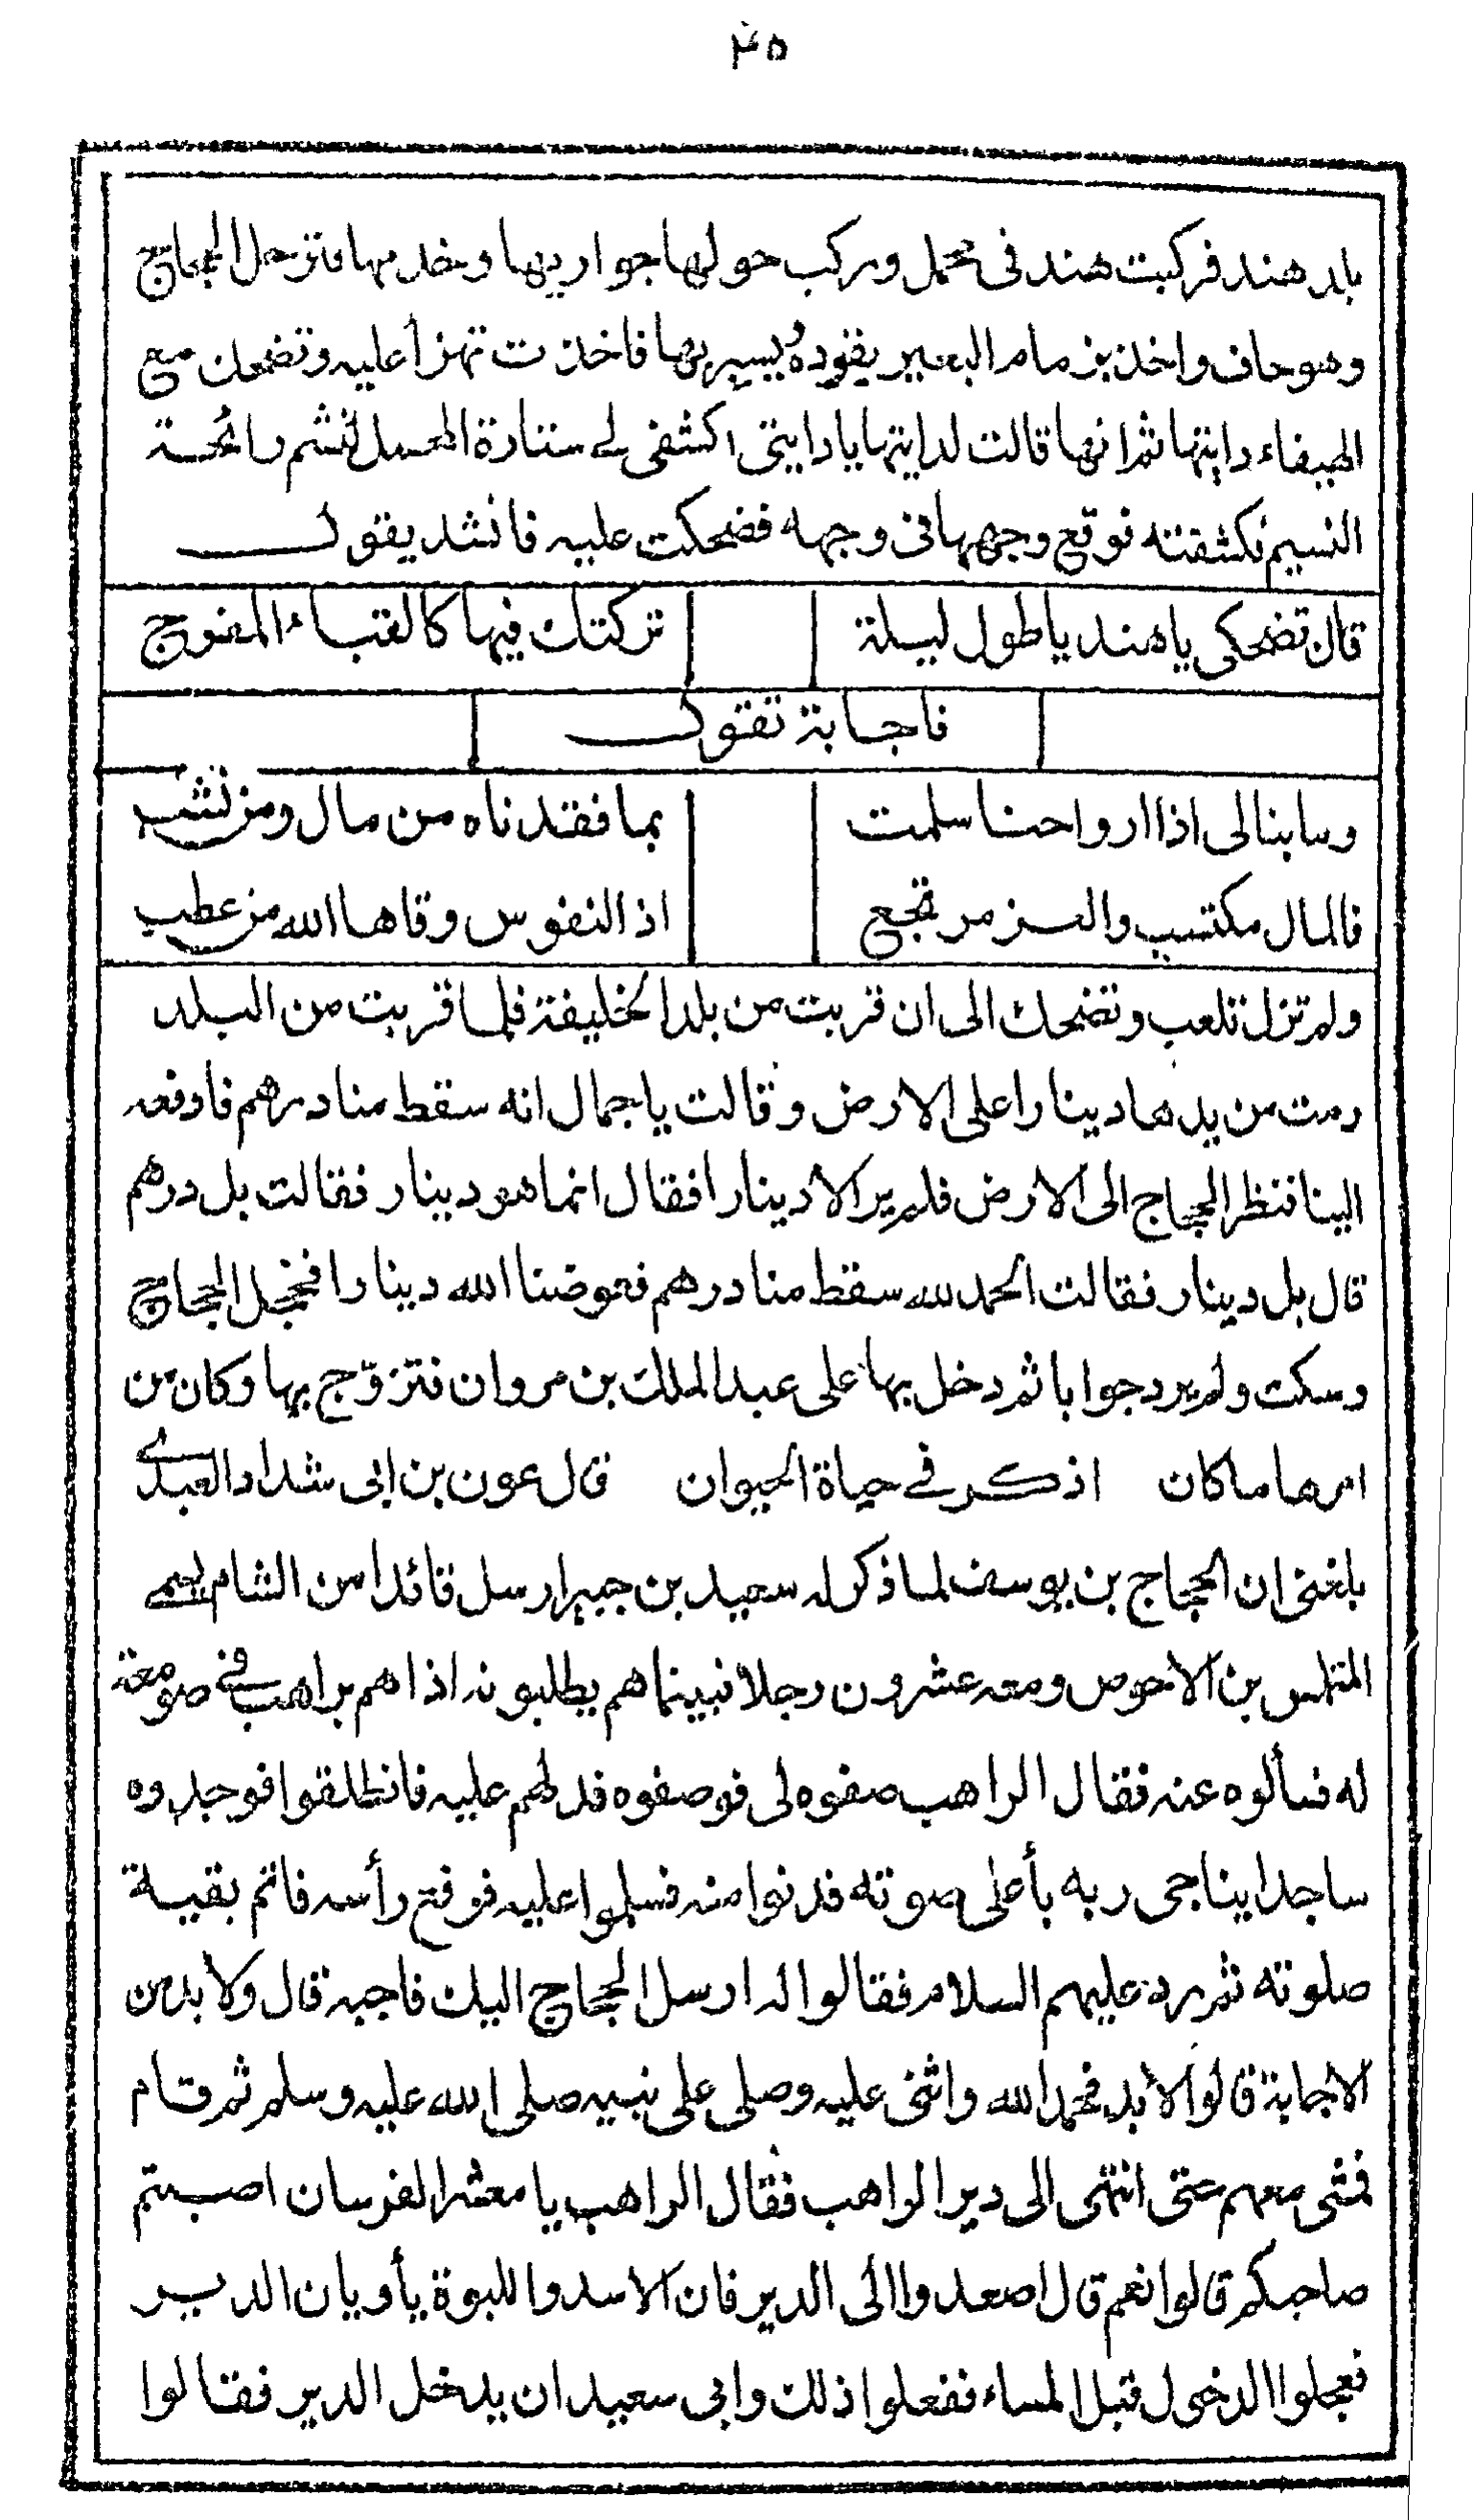 ۲۵
بلد هند فركبت هند فى محمل وركب حولها جواريها وخدمها فترحل الحجاج
وهو حاف واخذ بزمام البعير يقوده يسير بها فاخذت تهزأ عليه وتضحك مع
الهيفاء دايتها ثم انها قالت لدايتها يا دايتى اكشفى لى ستارة المحمل لنشم رائحة
النسيم فكشفته فوقع وجهها فى وجهه فضحكت عليه فانشد يقول
فان تضحكى يا هند يا طول ليلة تركتك فيها كالقباء المفوج
فاجابة تقول
وما بنالى اذا ارواحنا سلمت بما فقدناه من مال ومن نشب
فالمال مكتسب والعز مرتجع اذ النفوس وقاها الله من عطب
ولم تزل تلعب وتضحك الى ان قربت من بلد الخليفة فلما قربت من البلد
رمت من يدها دينارا على الارض وقالت يا جمال انه سقط منا درهم فادفعه
الينا فنظر الحجاج الى الارض فلم ير الا دينارا فقال انما هو دينار فقالت بل درهم
قال بل دينار فقالت الحمد لله سقط منا درهم فعوضنا الله دينارا فخجل الحجاج
وسكت ولم يرد جوابا ثم دخل بها على عبد الملك بن مروان فتزوّج بها وكان من
امرها ما كان اذكر فى حياة الحيوان قال عون بن ابى شداد العبدى
بلغنى ان الحجاج بن يوسف لما ذكر له سعيد بن جبير ارسل قائدا من الشام يسمى
المتلمس بن الاحوص ومعه عشرون رجلا فبينما هم يطلبونه اذا هم براهب فى صومعة
له فسألوه عنه فقال الراهب صفوه لى فوصفوه فدلهم عليه فانطلقوا فوجدوه
ساجدا يناجى ربه بأعلى صوته فدنوا منه فسلموا عليه فرفع رأسه فاتم بقية
صلوته ثم رد عليهم السلام فقالوا له ارسل الحجاج اليك فاجبه قال ولا بد من
الاجابة قالوا لا بد فحمد الله واثنى عليه وصلى على نبيه صلى الله عليه وسلم ثم قام
فمشى معهم حتى انتهى الى دير الراهب فقال الراهب يا معشر الفرسان اصبتم
صاحبكم قالوا نعم قال اصعدوا الى الدير فان الاسد واللبوة يأويان الدير
فعجلوا الدخول قبل المساء ففعلوا ذلك وابى سعيد ان يدخل الدير فقالوا